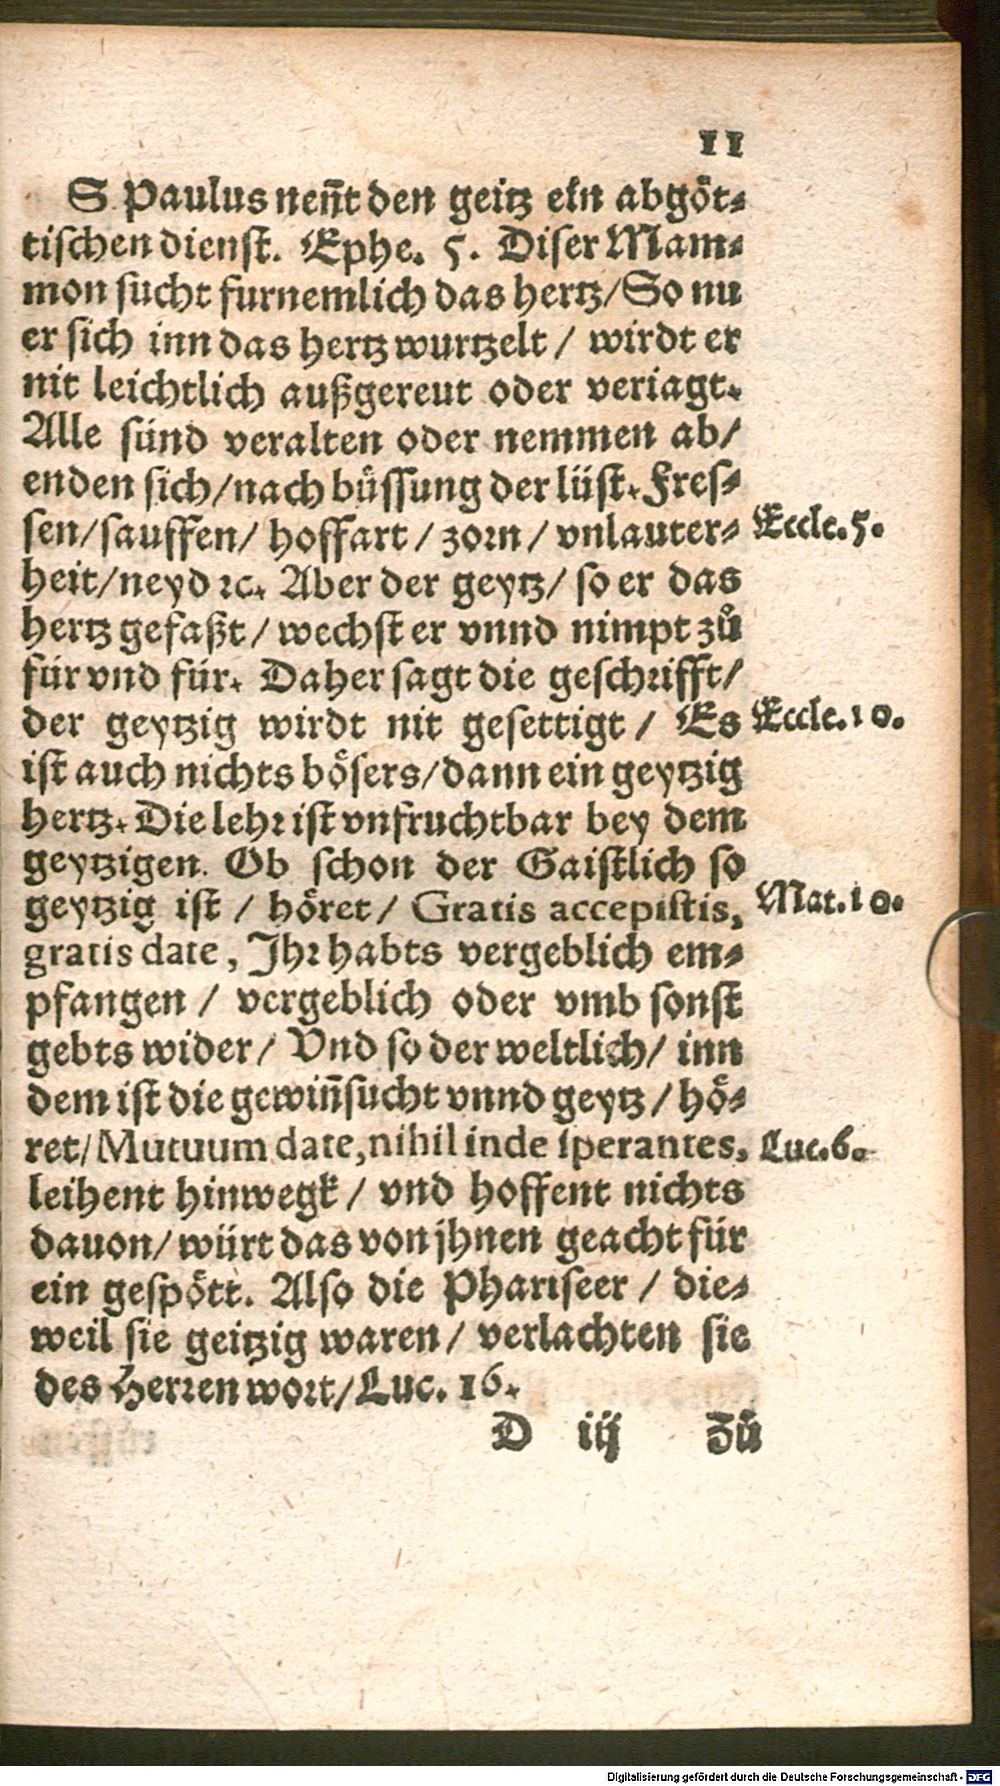 11
S. Paulus neñt den geitz ein abgöt⸗
tischen dienst. Ephe. 5. Diser Mam⸗
mon sucht furnemlich das hertz/ So nu
er sich inn das hertz wurtzelt / wirdt er
nit leichtlich außgereut oder veriagt.
Alle sünd veralten oder nemmen ab/
enden sich/ nach büssung der lüst. Fres⸗
sen/ sauffen/ hoffart / zorn / vnlauter⸗
Eccle. 5.
heit/ neyd ꝛc. Aber der geytz/ so er das
hertz gefaßt / wechst er vnnd nimpt zů
für vnd für. Daher sagt die geschrifft/
der geytzig wirdt nit gesettigt / Es
Eccle. 10.
ist auch nichts bösers/ dann ein geytzig
hertz. Die lehr ist vnfruchtbar bey dem
geytzigen. Ob schon der Gaistlich so
geytzig ist / höret/ Gratis accepistis,
Mat. 10.
gratis date, Ihr habts vergeblich em⸗
pfangen / vergeblich oder vmb sonst
gebts wider/ Vnd so der weltlich/ inn
dem ist die gewiñsucht vnnd geytz / hö⸗
ret/ Mutuum date, nihil inde sperantes,
Luc. 6.
leihent hinwegk / vnd hoffent nichts
dauon/ würt das von jhnen geacht für
ein gespött. Also die Phariseer / die⸗
weil sie geitzig waren/ verlachten sie
des Herren wort/ Luc. 16.
D iij Zů
Digitalisierung gefördert durch die Deutsche Forschungsgemeinschaft - DFG